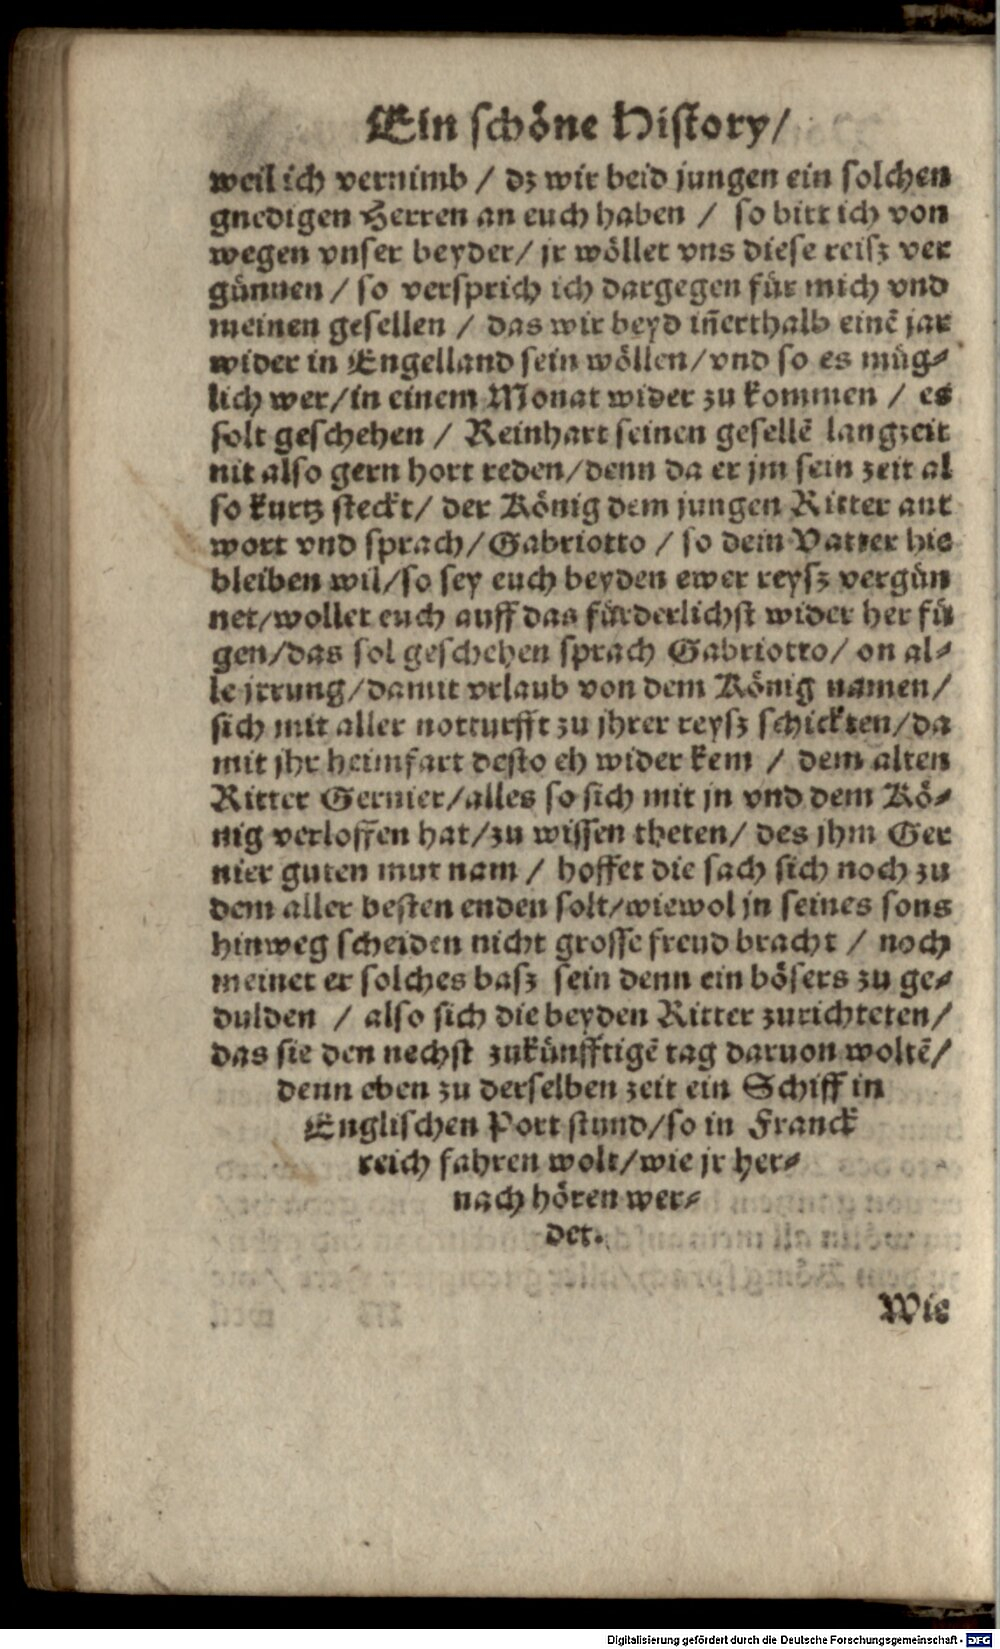 Ein schöne History/
weil ich vernimb / dz wir beid jungen ein solchen
gnedigen Herren an euch haben / so bitt ich von
wegen vnser beyder/ jr wöllet vns diese reisz ver
günnen / so versprich ich dargegen für mich vnd
meinen gesellen / das wir beyd iñerthalb einẽ jar
wider in Engelland sein wöllen/vnd so es müg⸗
lich wer/in einem Monat wider zu kommen / es
solt geschehen / Reinhart seinen gesellẽ langzeit
nit also gern hort reden/denn da er jm sein zeit al
so kurtz steckt/ der König dem jungen Ritter ant
wort vnd sprach/Gabriotto / so dein Vatter hie
bleiben wil/so sey euch beyden ewer reysz vergün
net/wollet euch auff das fürderlichst wider her fü
gen/das sol geschehen sprach Gabriotto/ on al⸗
le jrrung/damit vrlaub von dem König namen/
sich mit aller notturfft zu jhrer reysz schickten/da
mit jhr heimfart desto eh wider kem / dem alten
Ritter Gernier/alles so sich mit jn vnd dem Kö⸗
nig verloffen hat/zu wissen theten/ des jhm Ger
nier guten mut nam / hoffet die sach sich noch zu
dem aller besten enden solt/wiewol jn seines sons
hinweg scheiden nicht grosse freud bracht / noch
meinet er solches basz sein denn ein bösers zu ge⸗
dulden / also sich die beyden Ritter zurichteten/
das sie den nechst zukünfftigẽ tag daruon woltẽ/
denn eben zu derselben zeit ein Schiff in
Englischen Port stund/so in Franck
reich fahren wolt/wie jr her⸗
nach hören wer⸗
det.
Wie
Digitalisierung gefördert durch die Deutsche Forschungsgemeinschaft - DFG